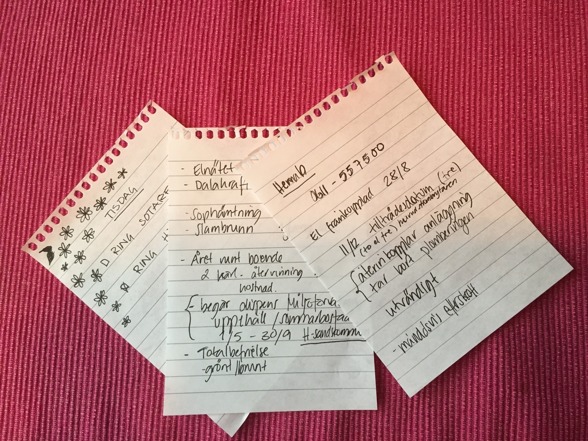 TISDAG
RING SOTARE
RING
- Elnätet
- Dalakraft
- Sophämtning
- Slambrunn
- Året runt boende
2 kärl - återvinning
kostnad.
begär dispens
uppehåll / sommarbostad
1/5 - 30/9 H-sandskommun
- Totalbefrielse
- grönt/brunt
Hemab
0611 - 557500
El frånkopplad 28/8
11/12 tillträdesdatum (fre)
återinkopplar anläggning
tar bort plomberingen
utvändigt
- månadsvis